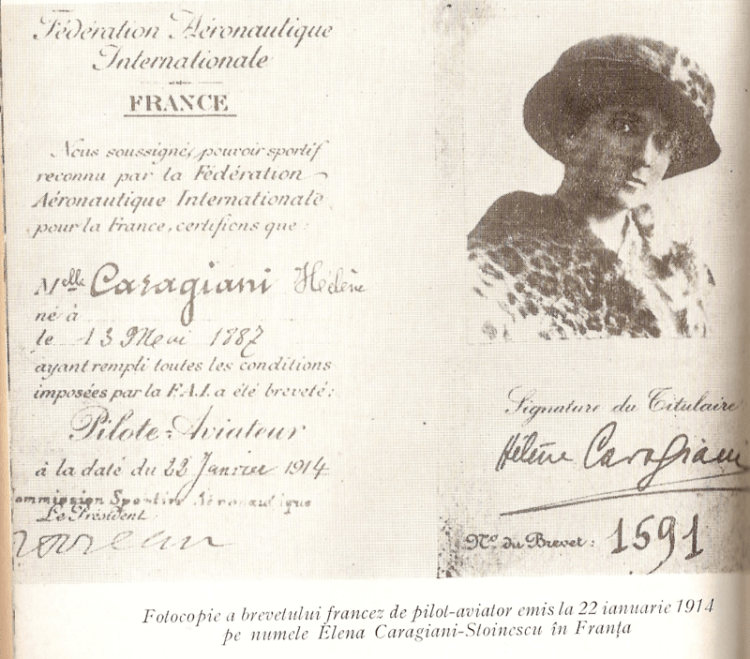 Fédération Aéronautique
Internationale
FRANCE
Nous soussignés, pouvoir sportif
reconnu par la Fédération
Aéronautique Internationale
pour la France, certifions que :
Melle Caragiani Hélène
né à
le 13 Mai 1887
ayant rempli toutes les conditions
imposées par la F.A.I. a été breveté :
Pilote-Aviateur
à la date du 22 Janvier 1914
Commission Sportive Aéronautique
Le Président
Signature du Titulaire
Hélène Caragiani
No du Brevet : 1591
Fotocopie a brevetului francez de pilot-aviator emis la 22 ianuarie 1914
pe numele Elena Caragiani-Stoinescu în Franța